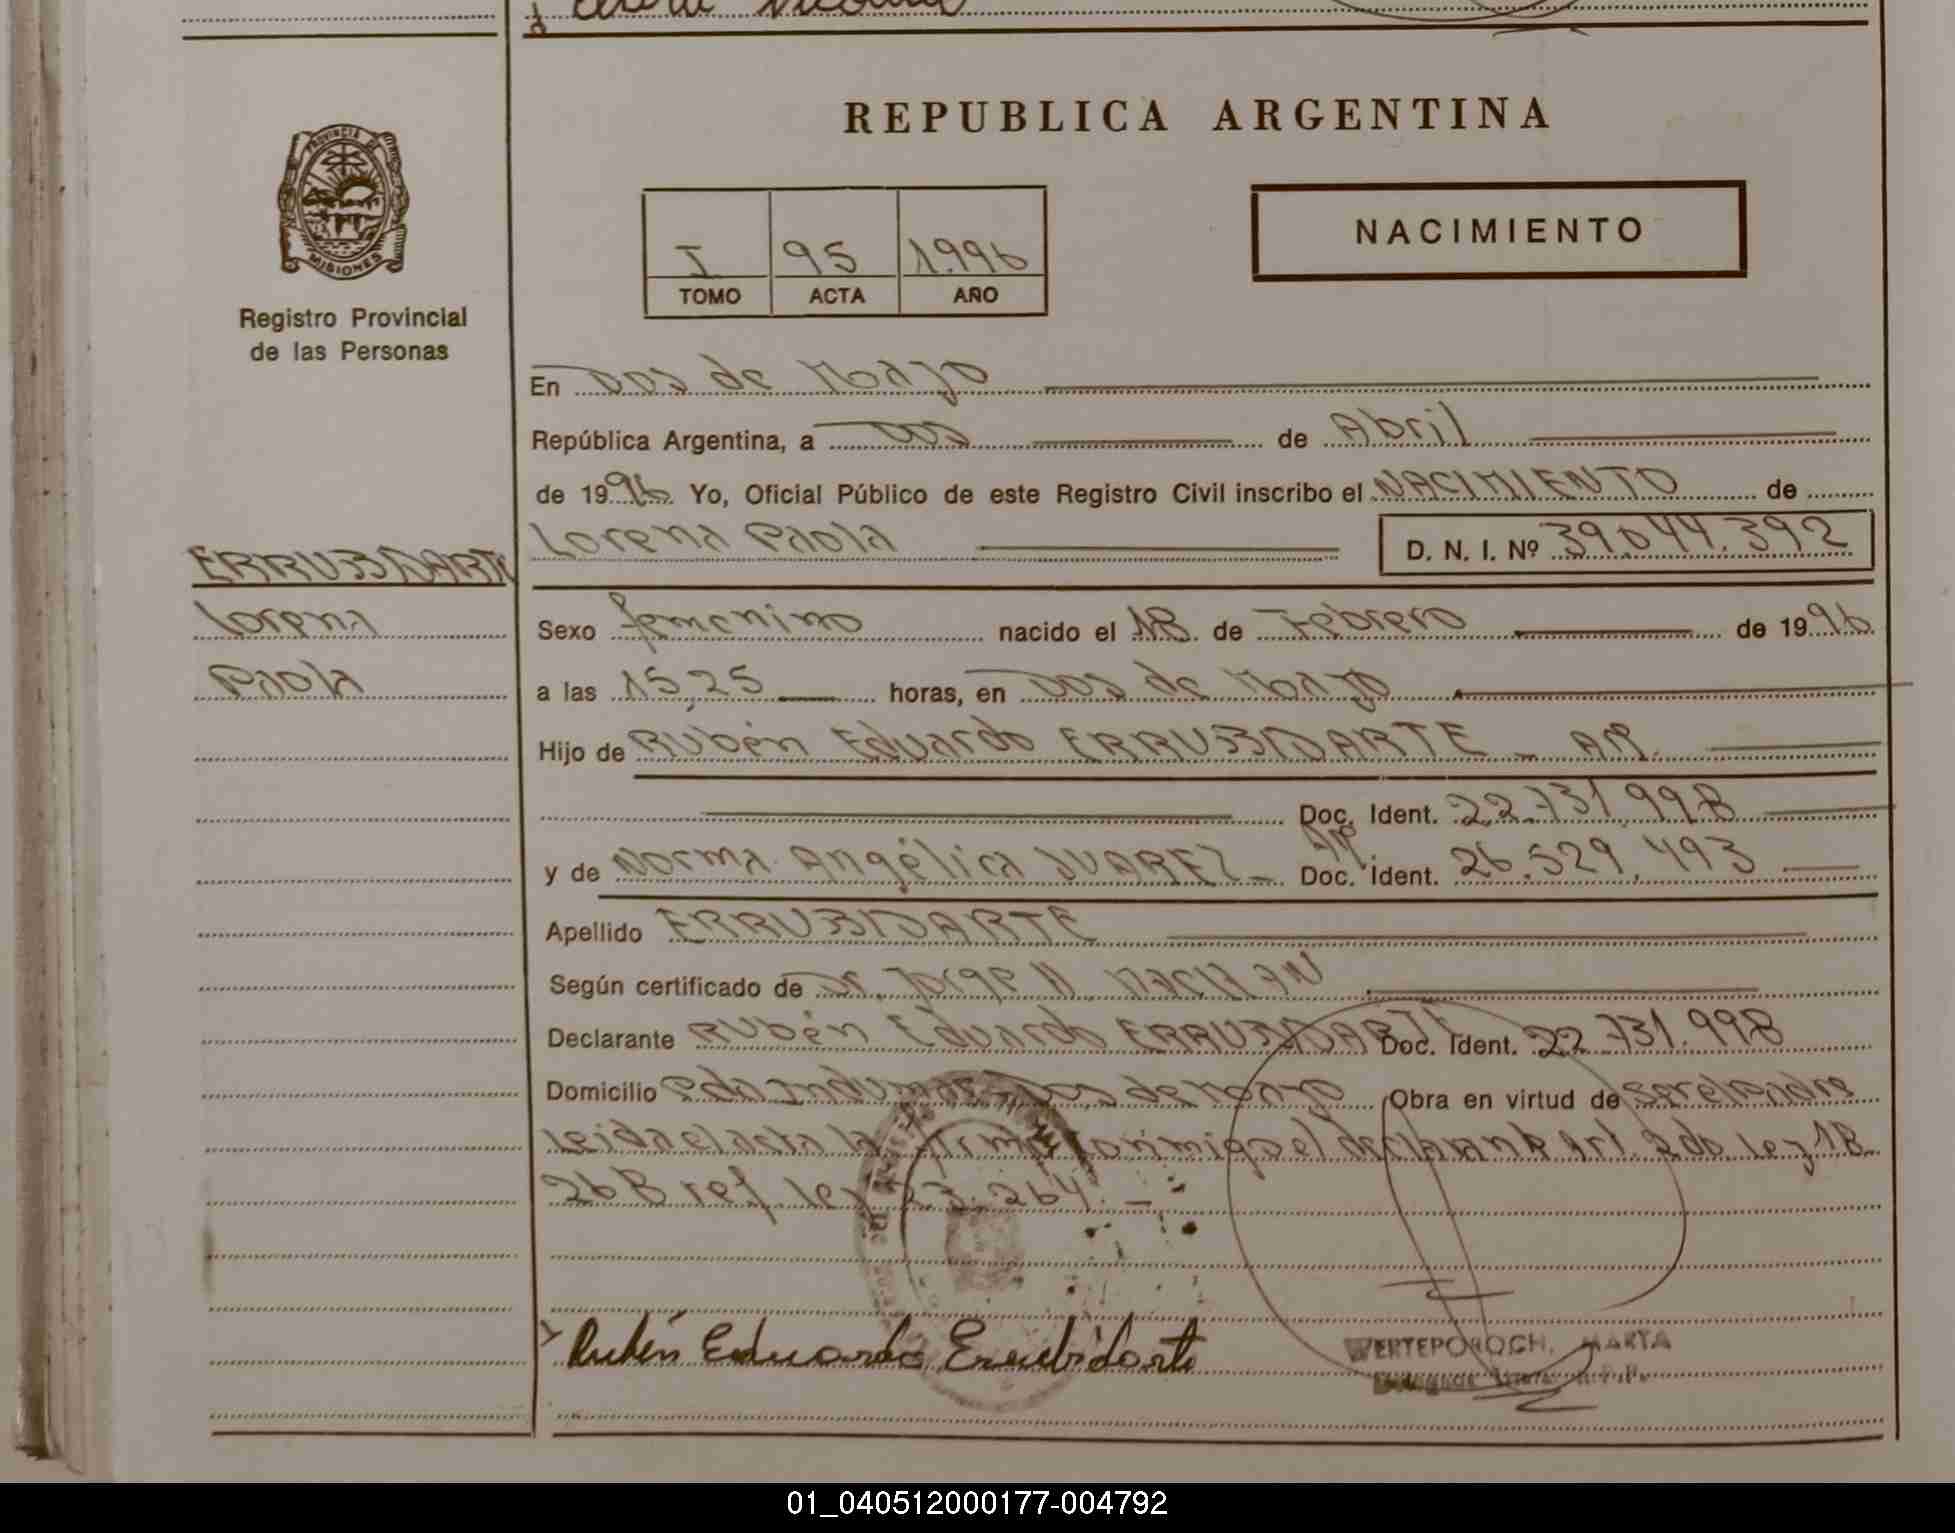 PROVINCIA DE
MISIONES
Registro Provincial
de las Personas
ERRUBIDARTE
Lorena
Paola
REPUBLICA ARGENTINA
I 95 1.996
TOMO ACTA AÑO
NACIMIENTO
En Dos de Mayo
República Argentina, a Dos de Abril
de 1996 Yo, Oficial Público de este Registro Civil inscribo el NACIMIENTO de
Lorena Paola D. N. I. Nº 39.044.392
Sexo femenino nacido el 18 de Febrero de 1996
a las 15,25 horas, en Dos de Mayo
Hijo de Rubén Eduardo ERRUBIDARTE - AR.
Doc. Ident. 22.731.998
y de Norma Angélica JUAREZ - AR. Doc. Ident. 26.529.493
Apellido ERRUBIDARTE
Según certificado de Dr. Jorge
Declarante Rubén Eduardo ERRUBIDARTE Doc. Ident. 22.731.998
Domicilio Dos de Mayo Obra en virtud de ser el padre
leida el acta la firma conmigo el declarante Art. 2do Ley 18.
268 ref. ley 23.264. -
Rubén Eduardo Errubidarte
WERTEPOROCH, MARTA
01_040512000177-004792